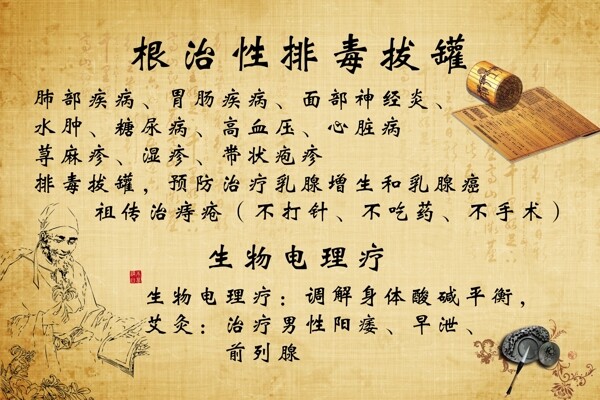 根治性排毒拔罐
肺部疾病、胃肠疾病、面部神经炎、
水肿、糖尿病、高血压、心脏病
荨麻疹、湿疹、带状疱疹
排毒拔罐，预防治疗乳腺增生和乳腺癌
祖传治痔疮（不打针、不吃药、不手术）
生物电理疗
生物电理疗：调解身体酸碱平衡，
艾灸：治疗男性阳痿、早泄、
前列腺